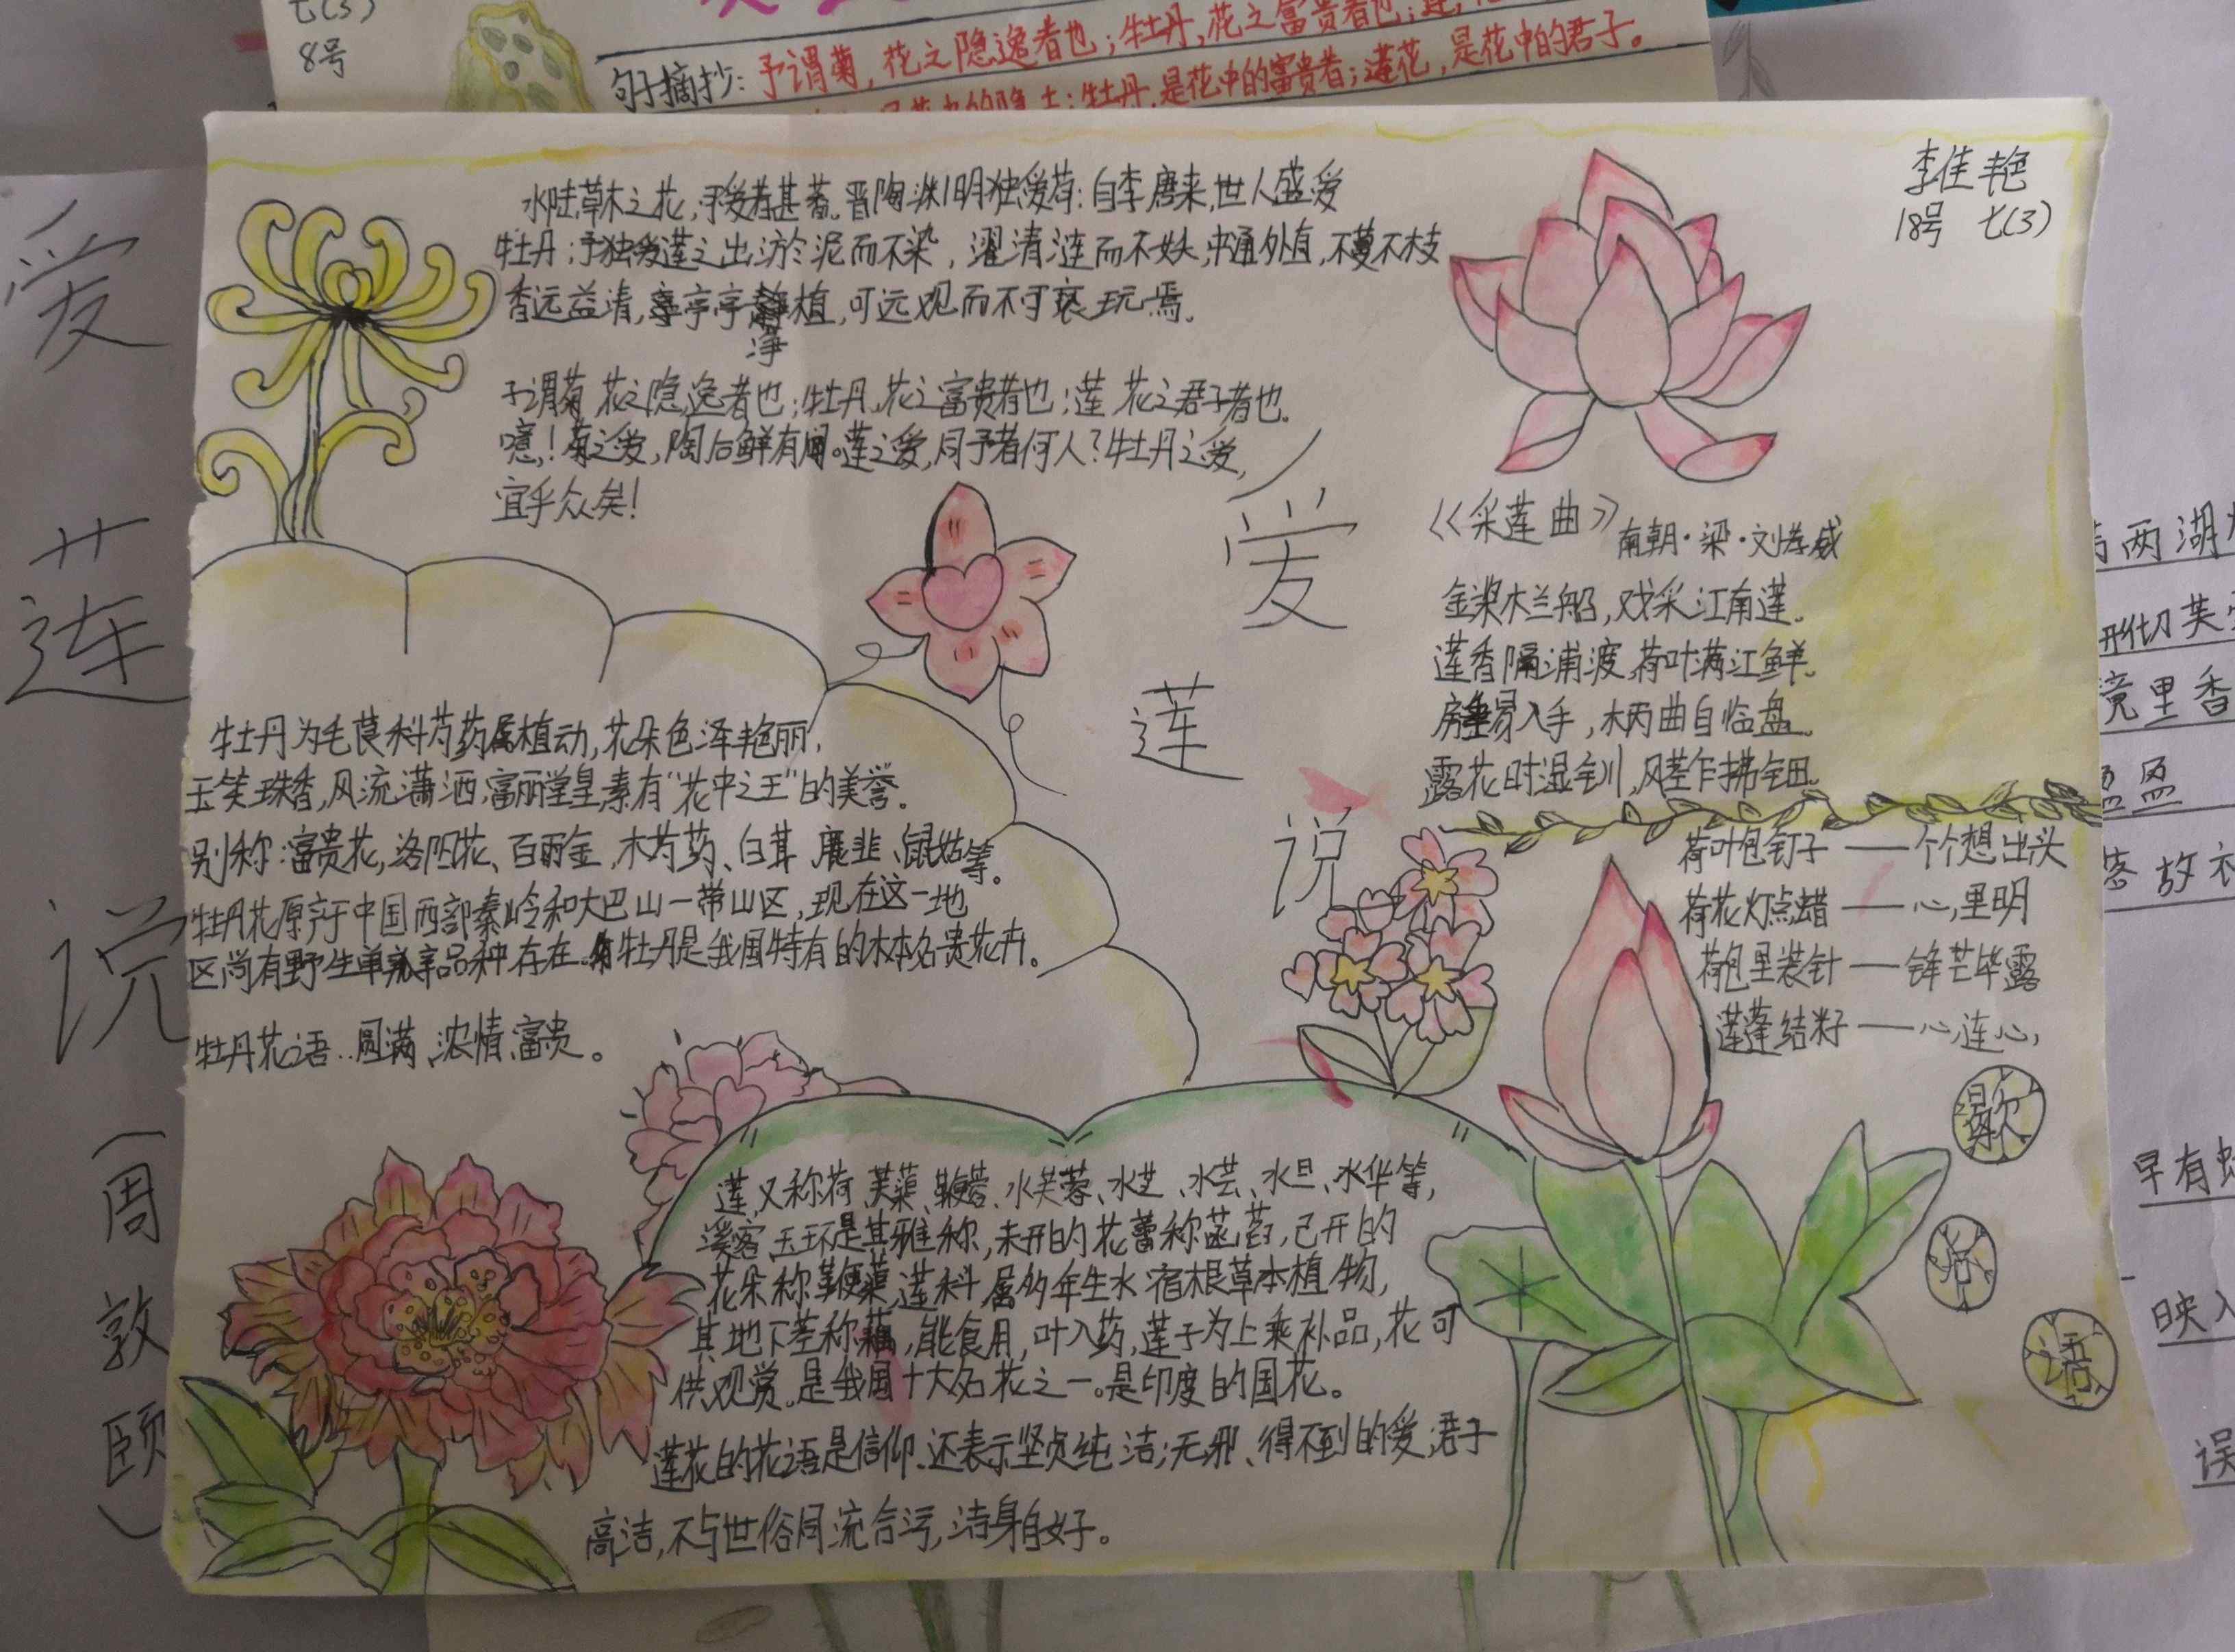 七(3)
8号
句子摘抄：予谓菊，花之隐逸者也；牡丹，花之富贵者也；莲，
牡丹，是花中的富贵者；莲花，是花中的君子。
爱
莲
说
（周
敦
颐）
李佳艳
18号 七(3)
水陆草木之花，可爱者甚蕃。晋陶渊明独爱菊；自李唐来，世人盛爱
牡丹；予独爱莲之出淤于泥而不染，濯清涟而不妖，中通外直，不蔓不枝
香远益清，亭亭净植，可远观而不可亵玩焉。
予谓菊，花之隐逸者也；牡丹，花之富贵者也；莲，花之君子者也。
噫！菊之爱，陶后鲜有闻。莲之爱，同予者何人？牡丹之爱，
宜乎众矣！
爱
莲
说
《采莲曲》南朝·梁·刘孝威
金桨木兰船，戏采江南莲。
莲香隔浦渡，荷叶满江鲜。
房垂易入手，木丙曲自临盘。
露花时湿钏，风茎乍拂钿。
牡丹为毛茛科芍药属植动，花朵色泽艳丽，
玉笑珠香，风流潇洒，富丽堂皇，素有“花中之王”的美誉。
别称：富贵花，洛阳花、百两金，木芍药、白茸、鹿韭、鼠姑等。
牡丹花原产于中国西部秦岭和大巴山一带山区，现在这一地
区尚有野生单瓣品种存在。牡丹是我国特有的木本名贵花卉。
牡丹花语：圆满、浓情、富贵。
荷叶包钉子——个个想出头
荷花灯点蜡——心里明
荷包里装针——锋芒毕露
莲蓬结籽——心连心，
歇
后
语
莲，又称荷、芙蕖、鞭蓉、水芙蓉、水芝、水芸、水旦、水华等，
溪客、玉环是其雅称，未开的花蕾称菡萏，已开的
花朵称鞭蕖，莲科属多年生水宿根草本植物，
其地下茎称藕，能食用，叶入药，莲子为上乘补品，花可
供观赏。是我国十大名花之一。是印度的国花。
莲花的花语是信仰、还表示坚贞纯洁；无邪、得不到的爱，君子
高洁，不与世俗同流合污，洁身自好。
两湖
境里香
盈盈
落故衣
早有
映入
误